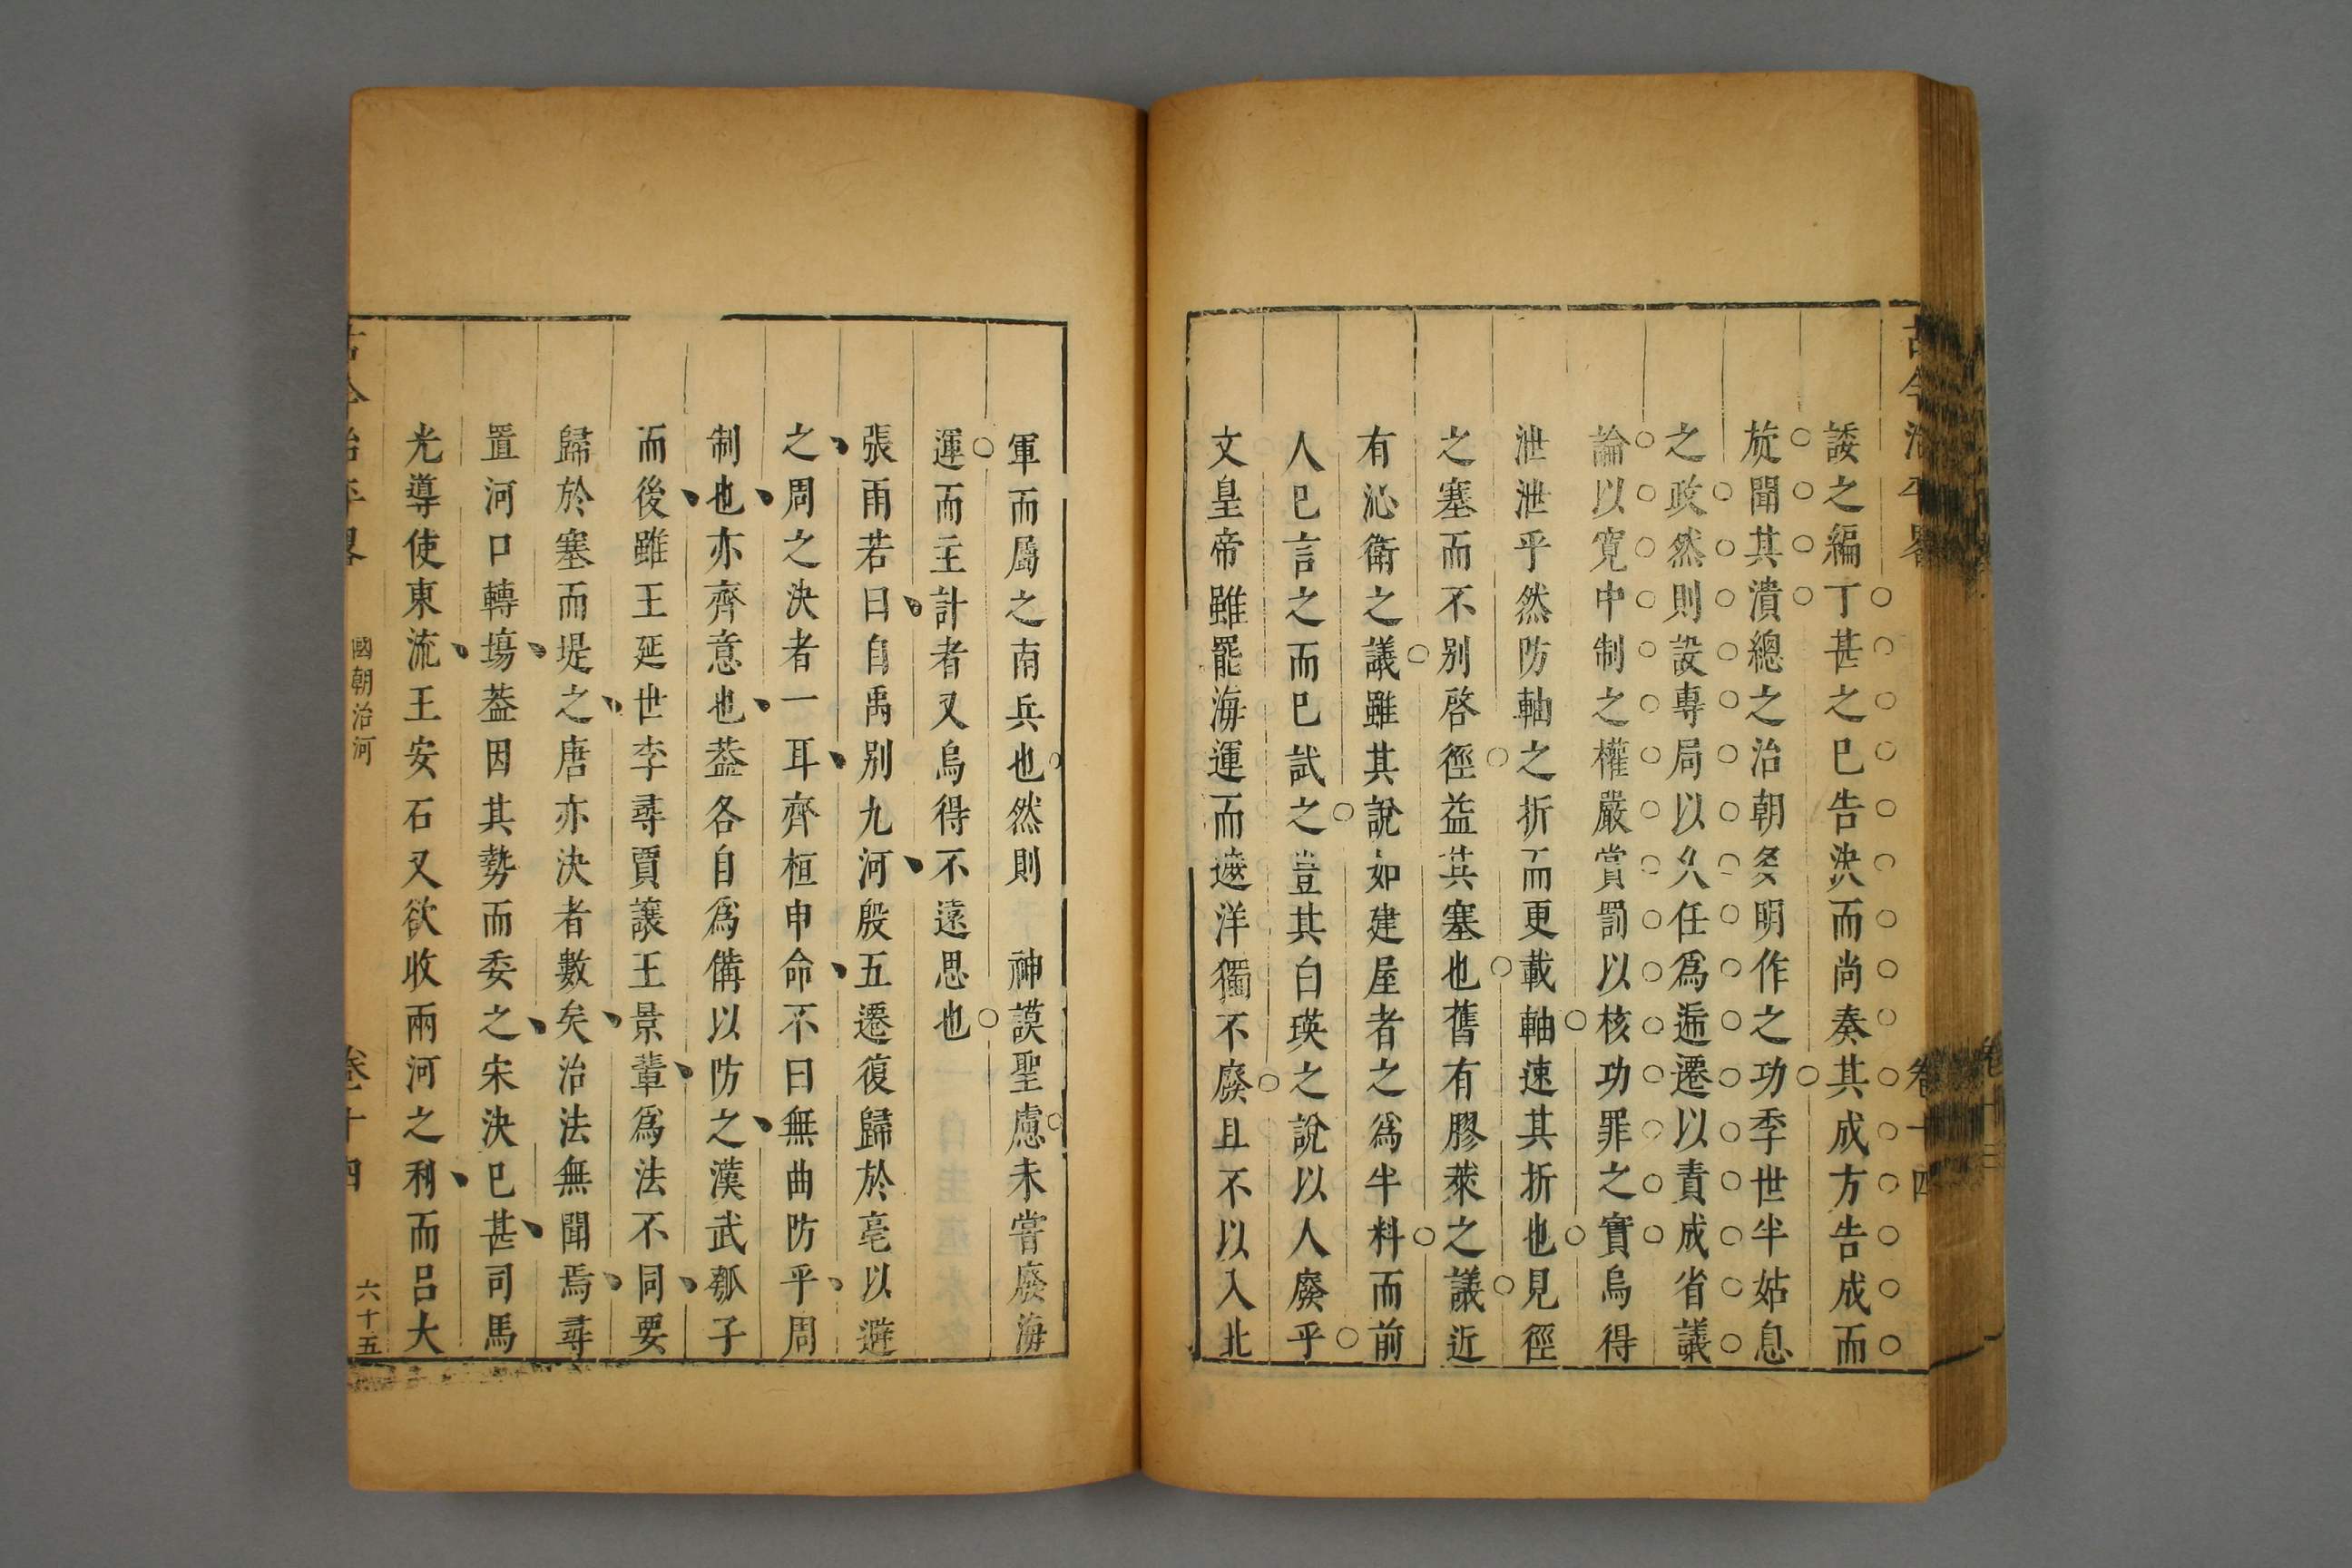 古今治平畧
卷十四
諉之編丁甚之巳告決而尚奏其成方告成而
旋聞其潰總之治朝多明作之功季世半姑息
之政然則設專局以久任爲遞遷以責成省議
論以寛中制之權嚴賞罰以核功罪之實烏得
泄泄乎然防軸之折而更載軸速其折也見徑
之塞而不别啓徑益其塞也舊有膠萊之議近
有沁衛之議雖其說如建屋者之爲半料而前
人巳言之而巳試之豈其白瑛之說以人廢乎
文皇帝雖罷海運而遮洋獨不廢且不以入北
軍而屬之南兵也然則　神謨聖慮未嘗廢海
運而主計者又烏得不遠思也
張雨若曰自禹别九河殷五遷復歸於亳以避
之周之決者一耳齊桓申命不曰無曲防乎周
制也亦齊意也葢各自爲備以防之漢武瓠子
而後雖王延世李尋賈讓王景輩爲法不同要
歸於塞而堤之唐亦決者數矣治法無聞焉尋
置河口轉塲葢因其勢而委之宋決巳甚司馬
光導使東流王安石又欲收兩河之利而呂大
古今治平畧
國朝治河
卷十四
六十五